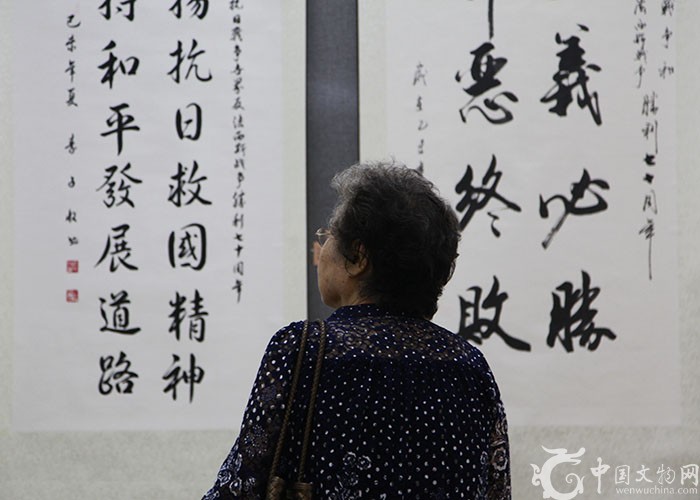 战争和
法西斯战争
勝利七十周年
義必勝
惡終敗
歲在乙未
抗日战争暨世界反法西斯战争勝利七十周年
揚抗日救國精神
持和平發展道路
乙未年夏 李子
中国文物网
wenwuchina.com